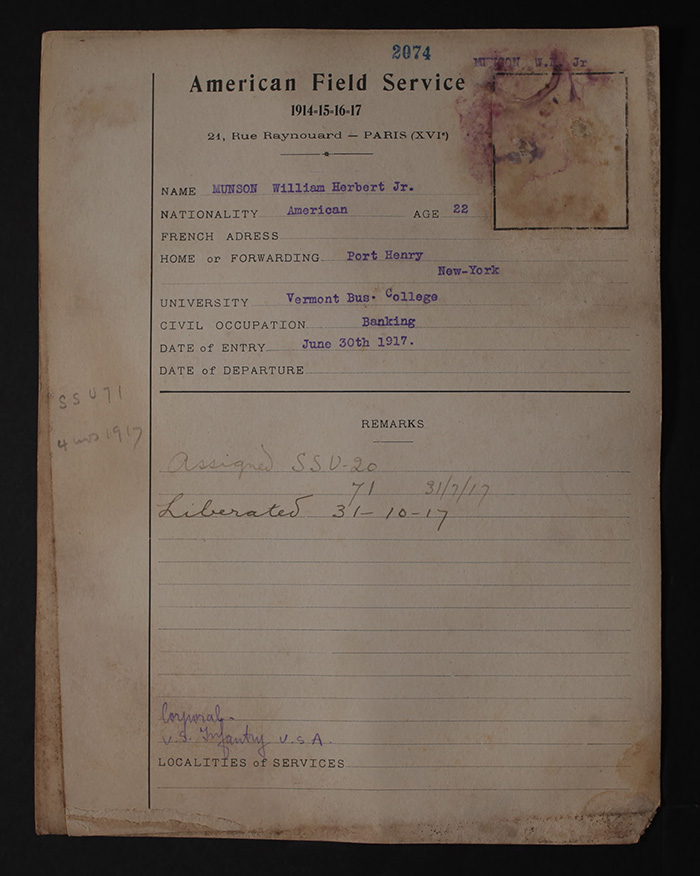 2074
MUNSON W.H. Jr
American Field Service
1914-15-16-17
21, Rue Raynouard — PARIS (XVIe)
NAME MUNSON William Herbert Jr.
NATIONALITY American AGE 22
FRENCH ADRESS
HOME or FORWARDING Port Henry
New-York
UNIVERSITY Vermont Bus. College
CIVIL OCCUPATION Banking
DATE of ENTRY June 30th 1917.
DATE of DEPARTURE
SSU 71
4 mos 1917
REMARKS
Assigned SSU-20
71 31/7/17
Liberated 31-10-17
Corporal-
U.S. Infantry U.S.A.
LOCALITIES of SERVICES